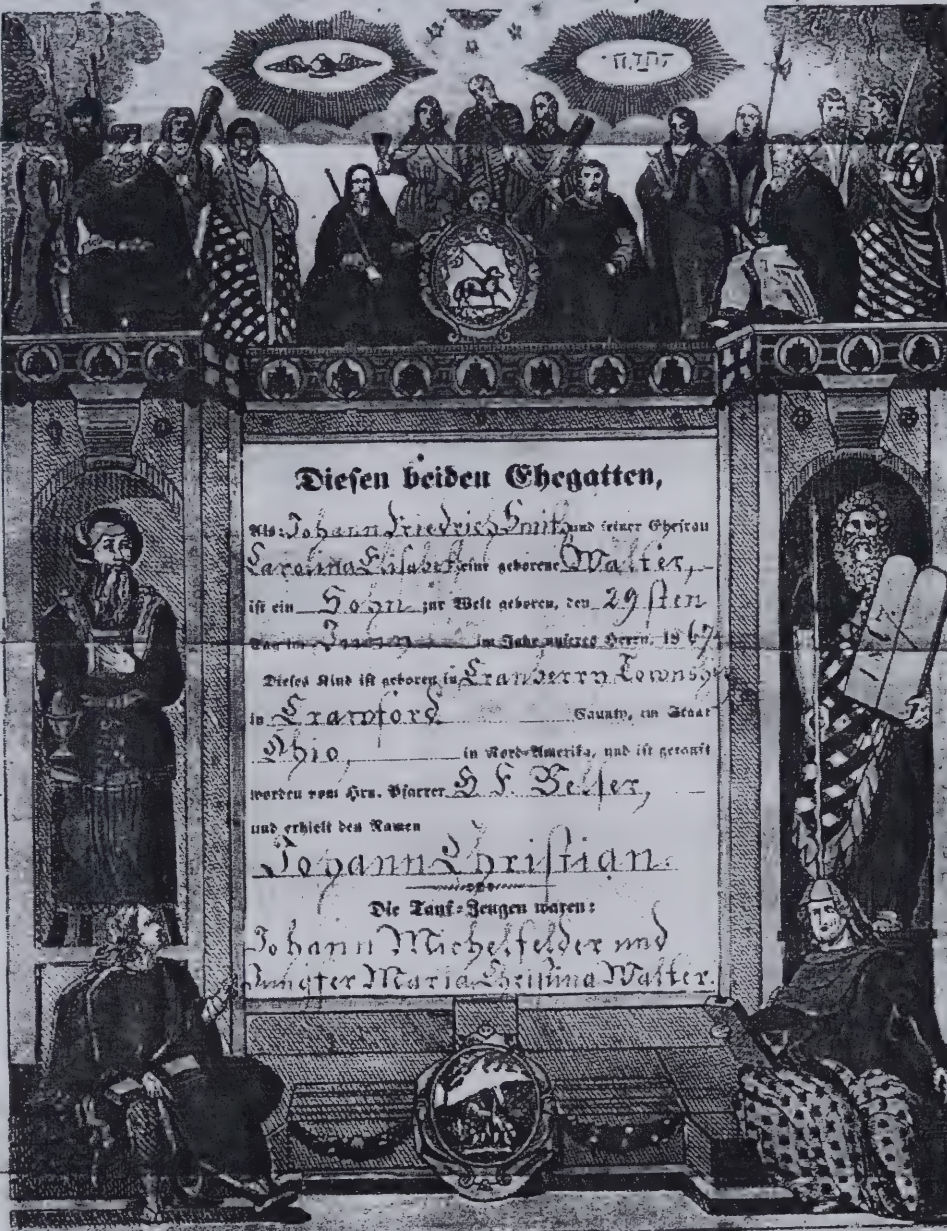 יהוה
Diesen beiden Ehegatten,
Als: Johann Friedrich Smith und seiner Ehefrau
Carolina Elisabeth, eine geborene Walter,
ist ein Sohn zur Welt geboren, den 29sten
Tag im im Jahr unseres Herrn, 1867.
Dieses Kind ist geboren in Cranberry Township
in Crawford County, im Staat
Ohio, in Nord-Amerika, und ist getauft
worden vom Hrn. Pfarrer
und erhielt den Namen
Johann Christian.
Die Tauf-Zeugen waren:
Johann Michelfelder und
Jungfer Maria Christina Walter.